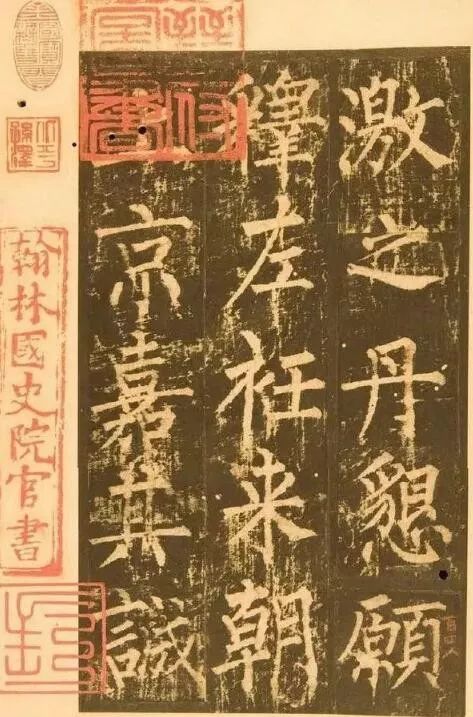 激之丹懇願
釋左衽来朝
京嘉其誠
翰林國史院官書